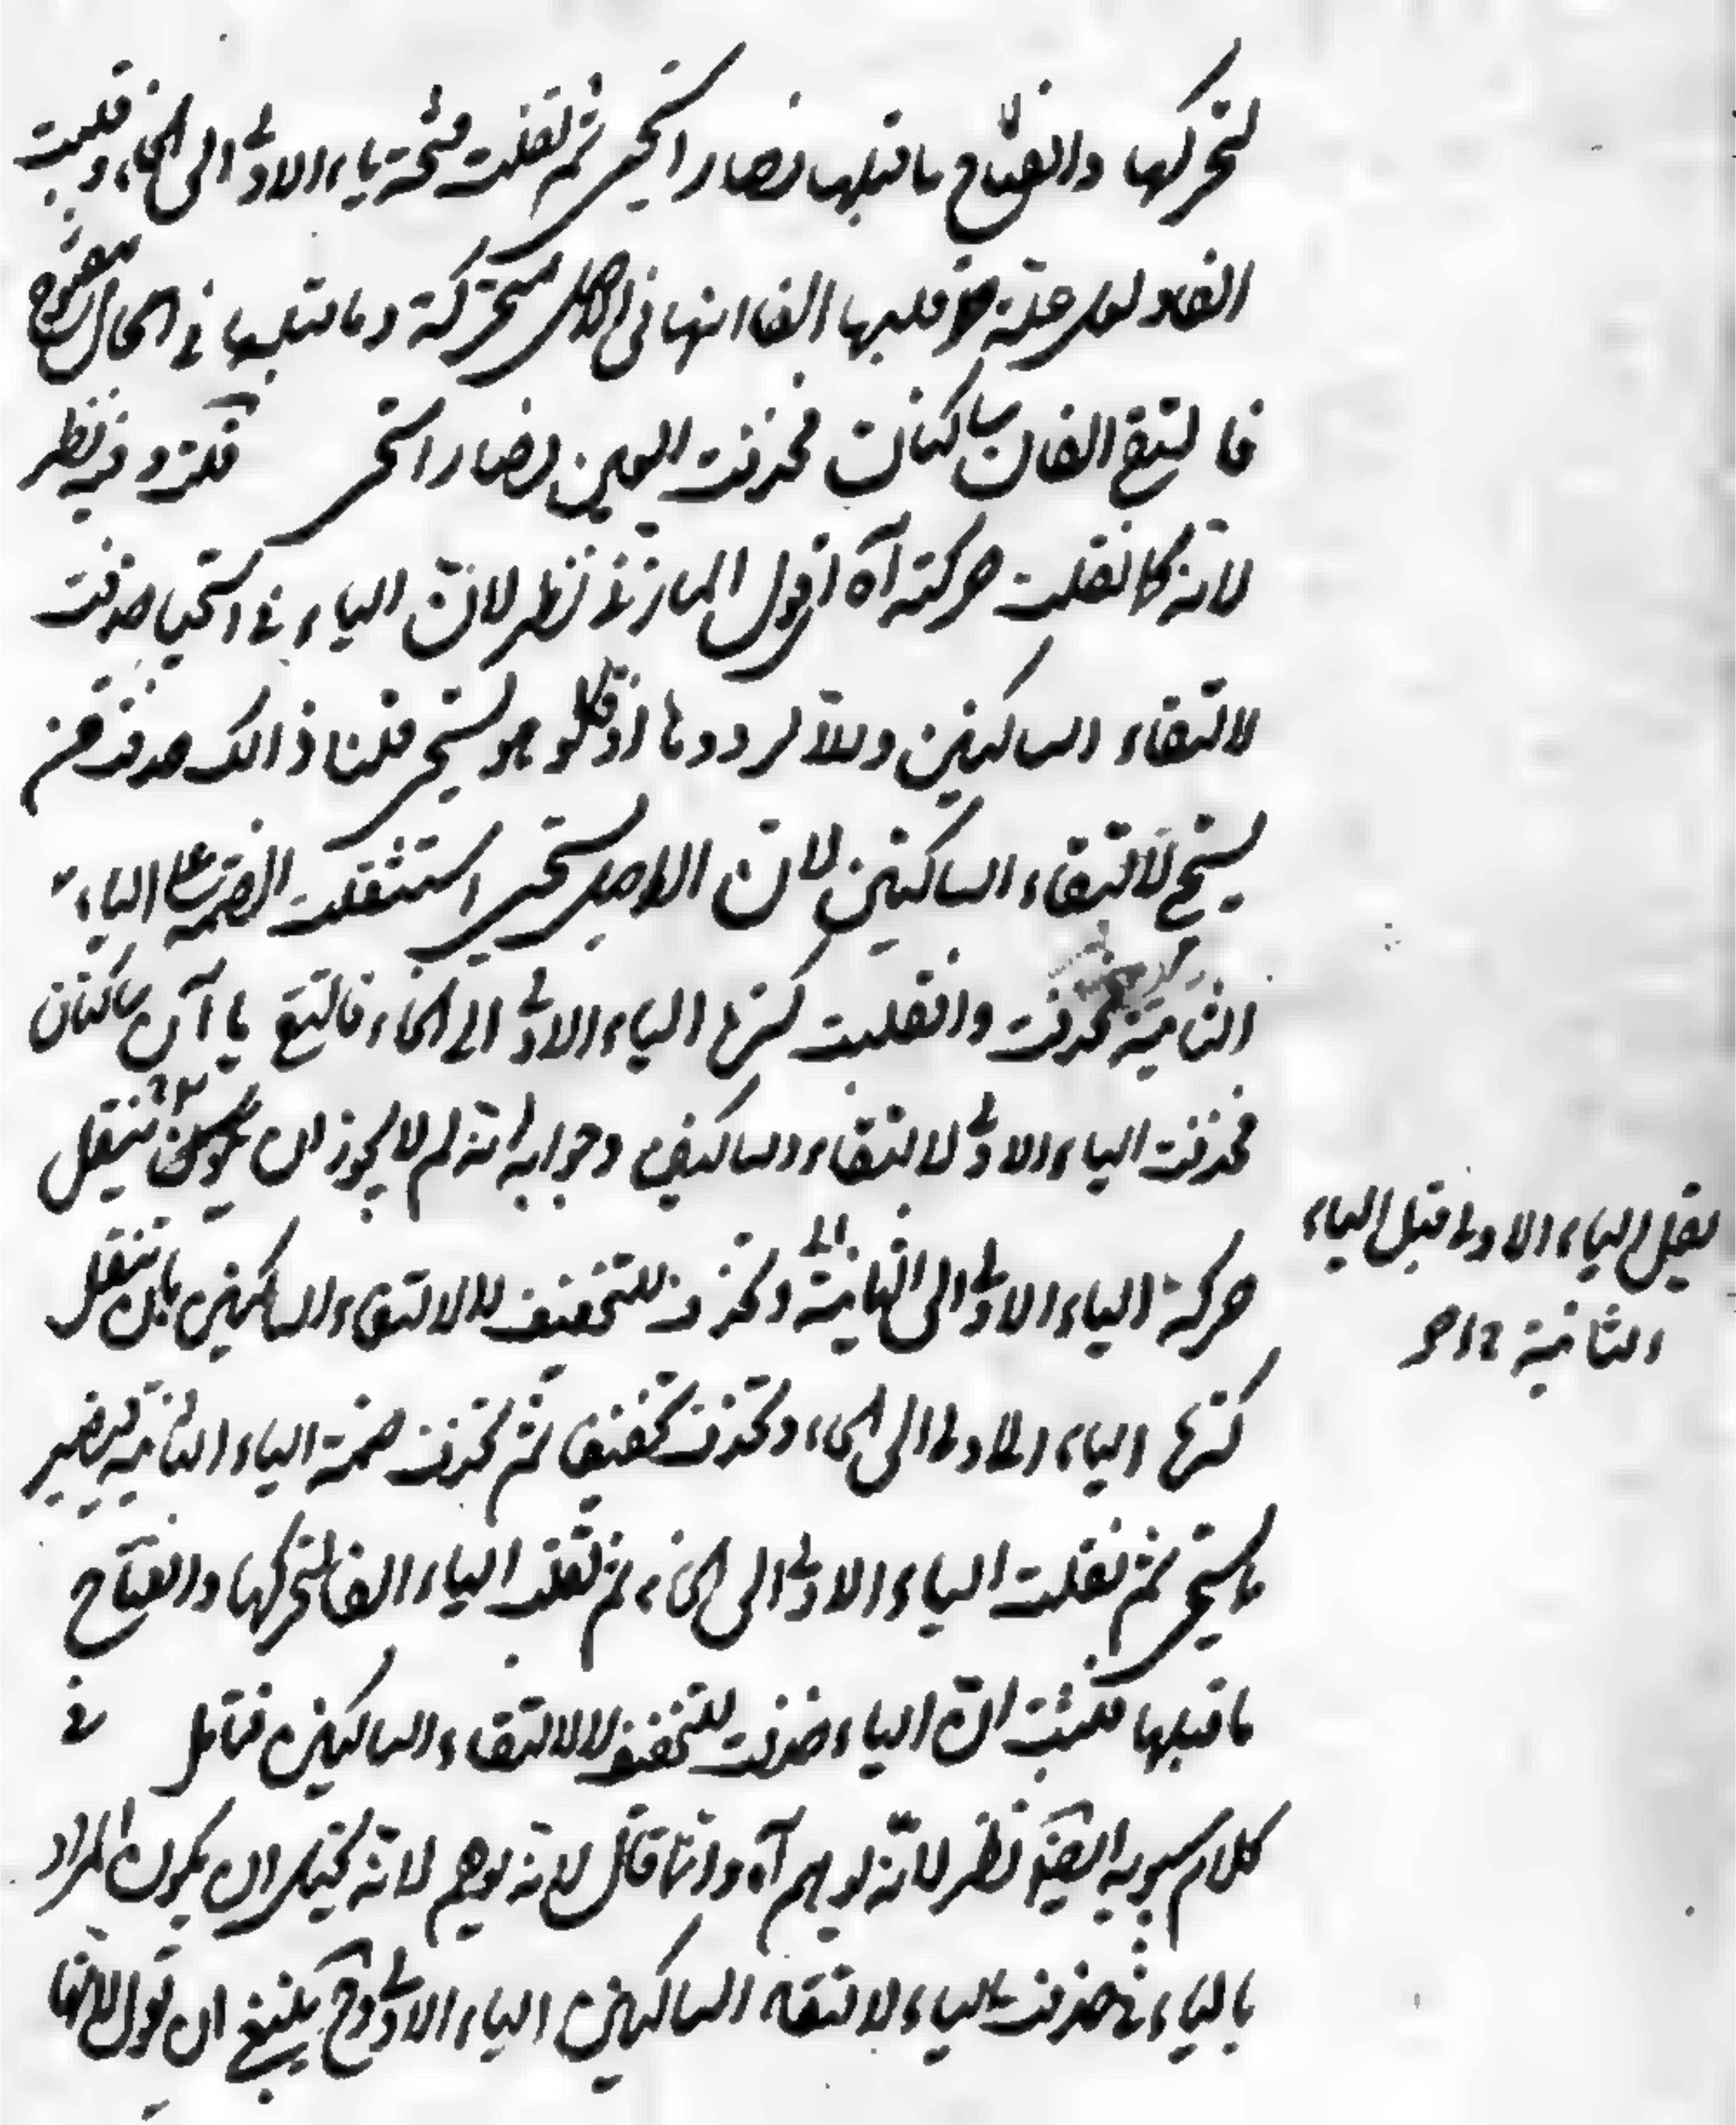 لتحركها وانفتاح ما قبلها فصار استحيى ثم نقلت فتحة ياء الاولى الى الحاء وقلبت
الفا و لعل علة قلبها الفا انها في الاصل متحركة وما قبلها في الحال مفتوح
فالتقى الفان ساكنان فحذفت العين فصار استحى قلت وفيه نظر
لانه كما نقلت حركته آه اقول المازني نظر لان الياء في استحيا حذفت
لالتقاء الساكنين والا لردوها اذ قالوا هو يستحى قلنا ذالك حذفت من
يستحى لالتقاء الساكنين لان الاصل يستحيى استثقلت الضمة على الياء
الثانية فحذفت وانقلبت كسرة الياء الاولى الى الحاء فالتقى ياآن ساكنان
فحذفت الياء الاولى لالتقاء الساكنين وجوابه انه لم لا يجوز ان يكون تنقل
حركة الياء الاولى الى الثانية وتحذف للتخفيف لا لالتقاء الساكنين بان تنقل
كسرة الياء الاولى الى الحاء وتحذف تخفيفا ثم تحذف ضمة الياء الثانية فيصير
يستحى ثم نقلت الياء الاولى الى الحاء ثم تقلب الياء الفا لتحركها وانفتاح
ما قبلها فثبت ان الياء حذفت للتخفيف لا لالتقاء الساكنين فتأمل في
كلام سيبويه ايضا نظر لانه يوهم آه وانما قال لانه يوهم لانه يحتمل ان يكون المراد
بالياء في حذفت الياء لالتقاء الساكنين الياء الاولى وح ينبغى ان يقول لانها
نقل الياء الاولى قبل الياء
الثانية ١٢